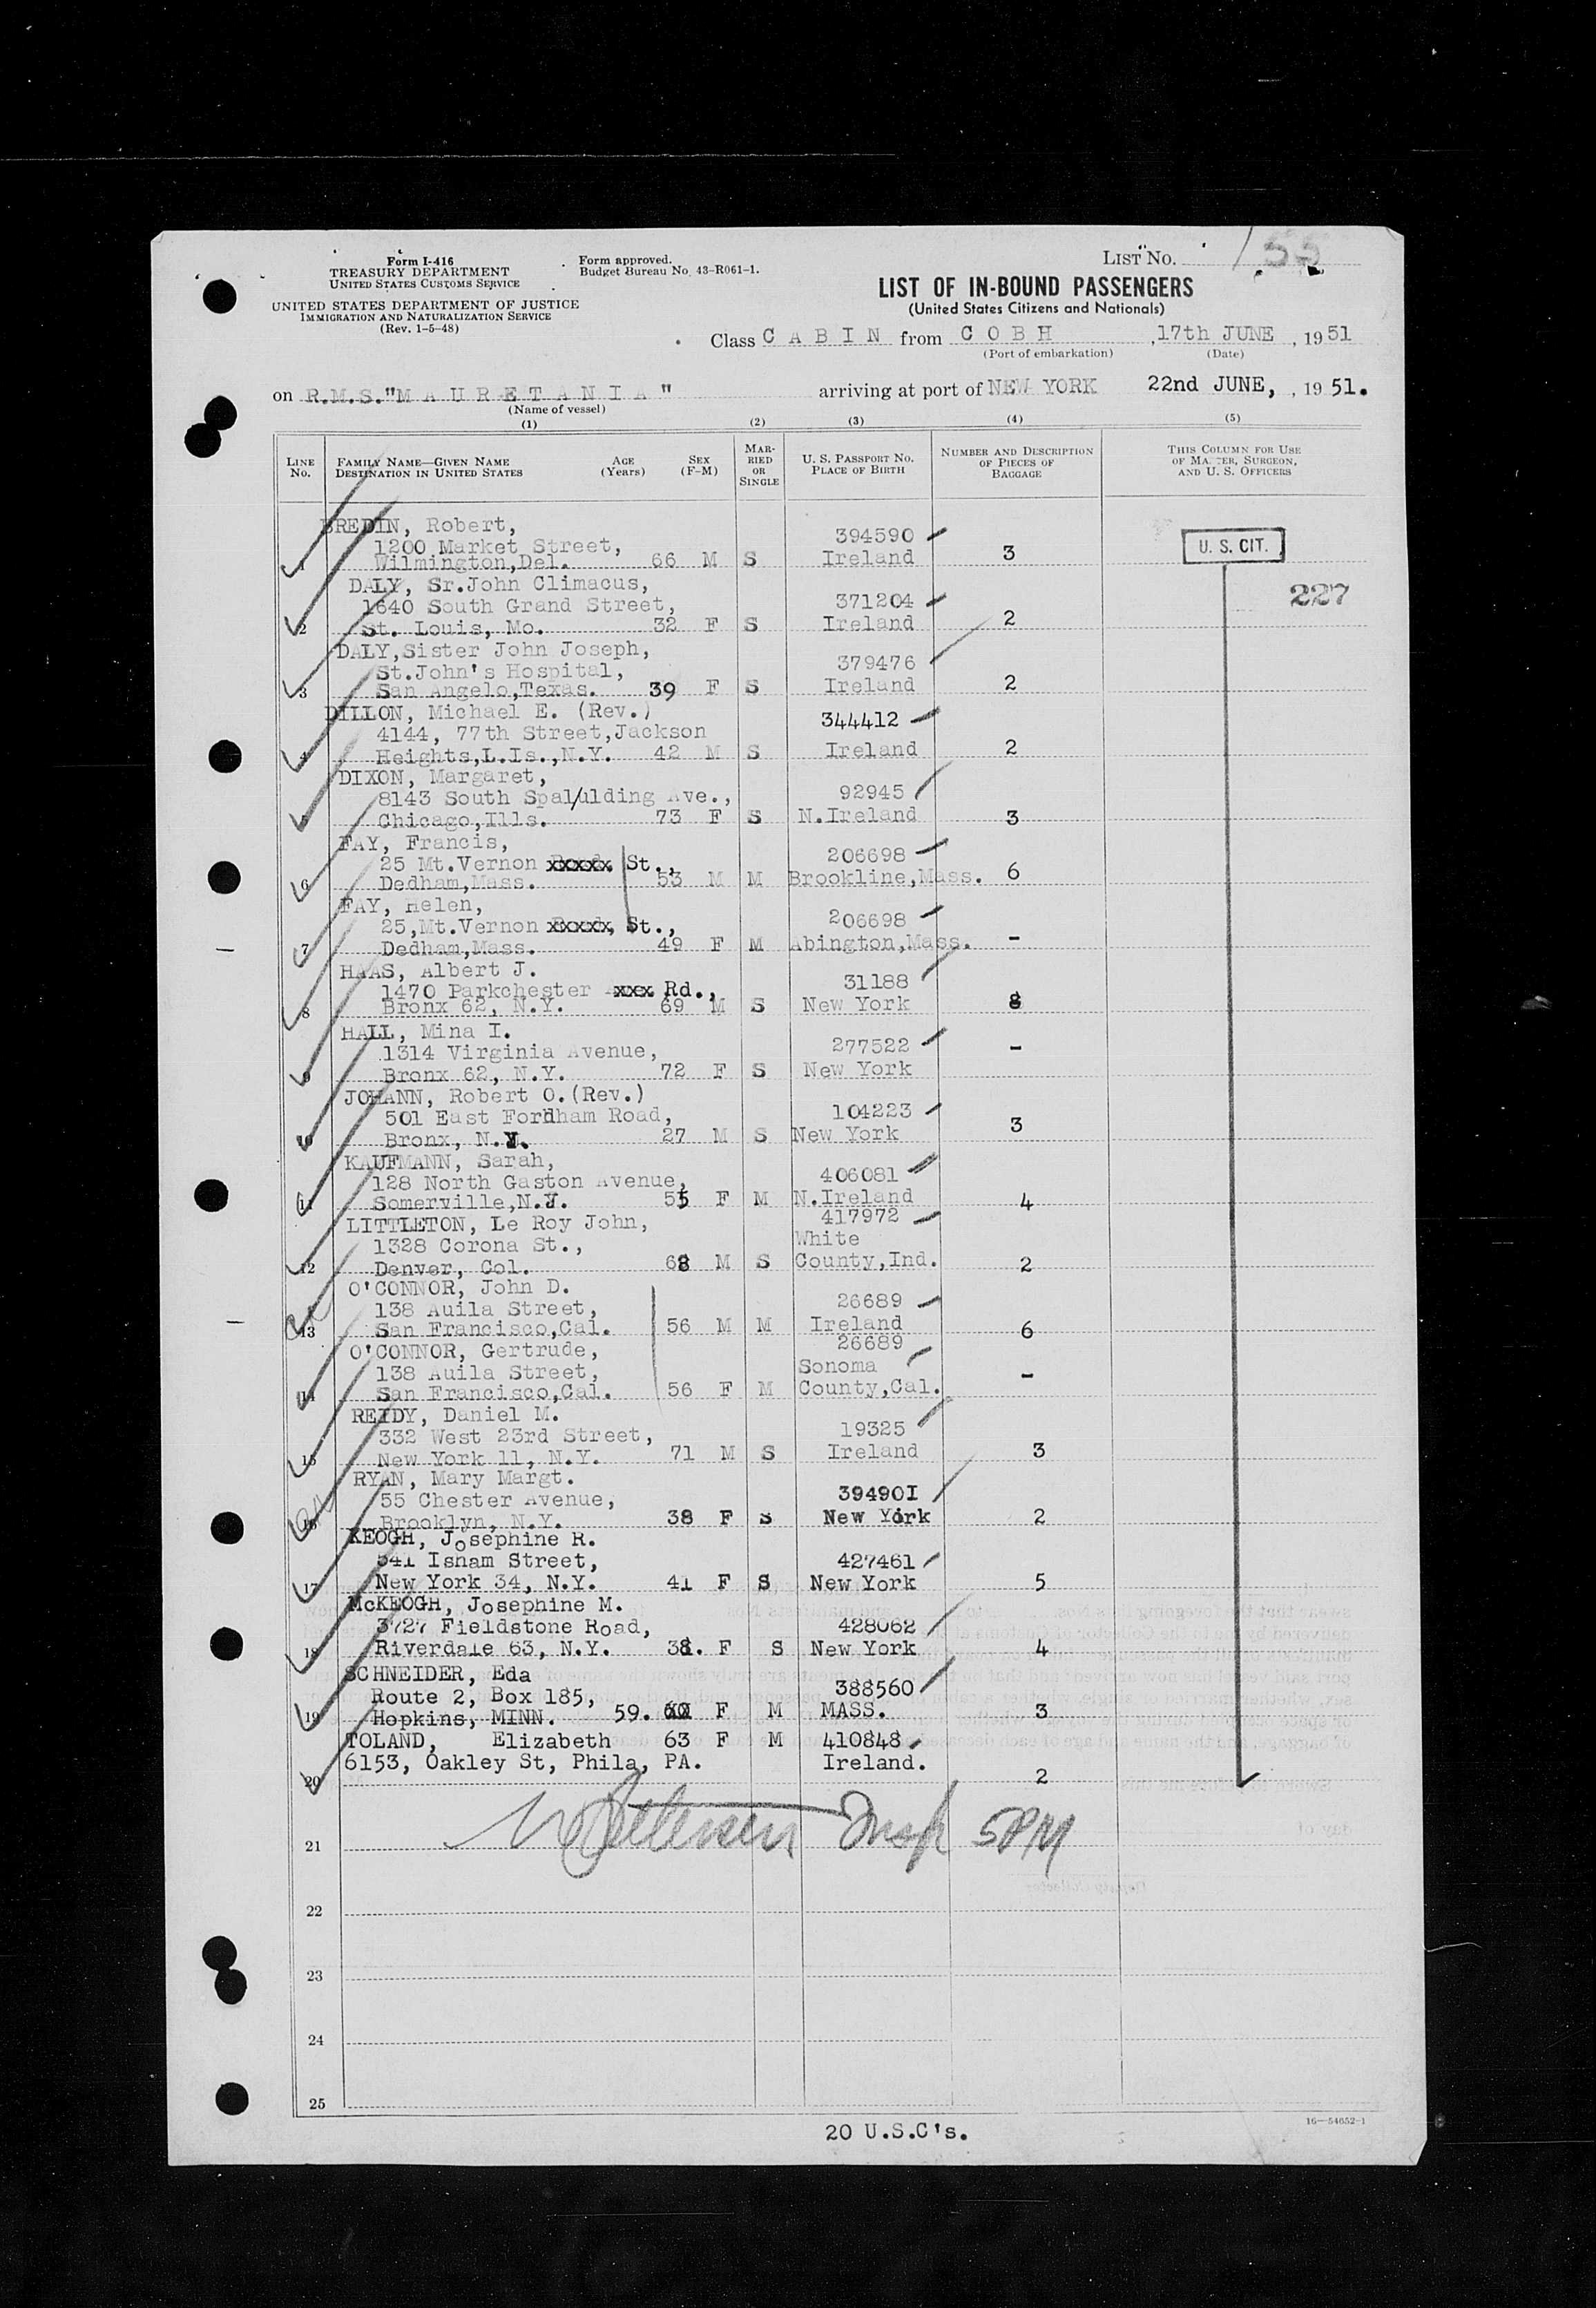 Form I-416
TREASURY DEPARTMENT
UNITED STATES CUSTOMS SERVICE
UNITED STATES DEPARTMENT OF JUSTICE
IMMIGRATION AND NATURALIZATION SERVICE
(Rev. 1-5-48)
Form approved.
Budget Bureau No. 43-R061-1.
LIST NO. 155
LIST OF IN-BOUND PASSENGERS
(United States Citizens and Nationals)
Class CABIN from COBH, 17th JUNE, 1951
(Port of embarkation) (Date)
on R.M.S."MAURETANIA" arriving at port of NEW YORK 22nd JUNE, , 1951.
(Name of vessel)
(1) (2) (3) (4) (5)
LINE NO. FAMILY NAME—GIVEN NAME DESTINATION IN UNITED STATES AGE (Years) SEX (F-M) MARRIED OR SINGLE U. S. PASSPORT NO. PLACE OF BIRTH NUMBER AND DESCRIPTION OF PIECES OF BAGGAGE THIS COLUMN FOR USE OF MASTER, SURGEON, AND U. S. OFFICERS
BREDIN, Robert, 394590
1200 Market Street, U. S. CIT.
1 Wilmington,Del. 66 M S Ireland 3
DALY, Sr.John Climacus, 227
1640 South Grand Street, 371204
2 St. Louis, Mo. 32 F S Ireland 2
DALY,Sister John Joseph,
St.John's Hospital, 379476
3 San Angelo,Texas. 39 F S Ireland 2
DILLON, Michael E. (Rev.) 344412
4144, 77th Street,Jackson
4 Heights,L.Is.,N.Y. 42 M S Ireland 2
DIXON, Margaret,
8143 South Spal/ulding Ave., 92945
5 Chicago,Ills. 73 F S N.Ireland 3
FAY, Francis,
25 Mt.Vernon xxxxx St., 206698
6 Dedham,Mass. 53 M M Brookline,Mass. 6
FAY, Helen,
25,Mt.Vernon xxxxx, St., 206698
7 Dedham,Mass. 49 F M Abington,Mass. -
HAAS, Albert J.
1470 Parkchester xxx Rd., 31188
8 Bronx 62, N.Y. 69 M S New York 8
HALL, Mina I.
1314 Virginia Avenue, 277522 -
9 Bronx 62, N.Y. 72 F S New York
JOHANN, Robert O.(Rev.)
501 East Fordham Road, 104223
10 Bronx, N.Y. 27 M S New York 3
KAUFMANN, Sarah,
128 North Gaston Avenue, 406081
11 Somerville,N.J. 55 F M N.Ireland 4
LITTLETON, Le Roy John, 417972
1328 Corona St., White
12 Denver, Col. 68 M S County,Ind. 2
O'CONNOR, John D.
138 Auila Street, 26689
13 San Francisco,Cal. 56 M M Ireland 6
O'CONNOR, Gertrude, 26689
138 Auila Street, Sonoma
14 San Francisco,Cal. 56 F M County,Cal. -
REIDY, Daniel M.
332 West 23rd Street, 19325
15 New York 11, N.Y. 71 M S Ireland 3
RYAN, Mary Margt.
55 Chester Avenue, 394901
16 Brooklyn, N.Y. 38 F S New York 2
KEOGH, Josephine R.
541 Isham Street, 427461
17 New York 34, N.Y. 41 F S New York 5
McKEOGH, Josephine M.
3727 Fieldstone Road, 428062
18 Riverdale 63, N.Y. 38. F S New York 4
SCHNEIDER, Eda
Route 2, Box 185, 388560
19 Hopkins, MINN. 59. F M MASS. 3
TOLAND, Elizabeth 63 F M 410848
6153, Oakley St, Phila, PA. Ireland.
20 2
21 Insp 5PM
22
23
24
25
20 U.S.C's.
16—54652-1